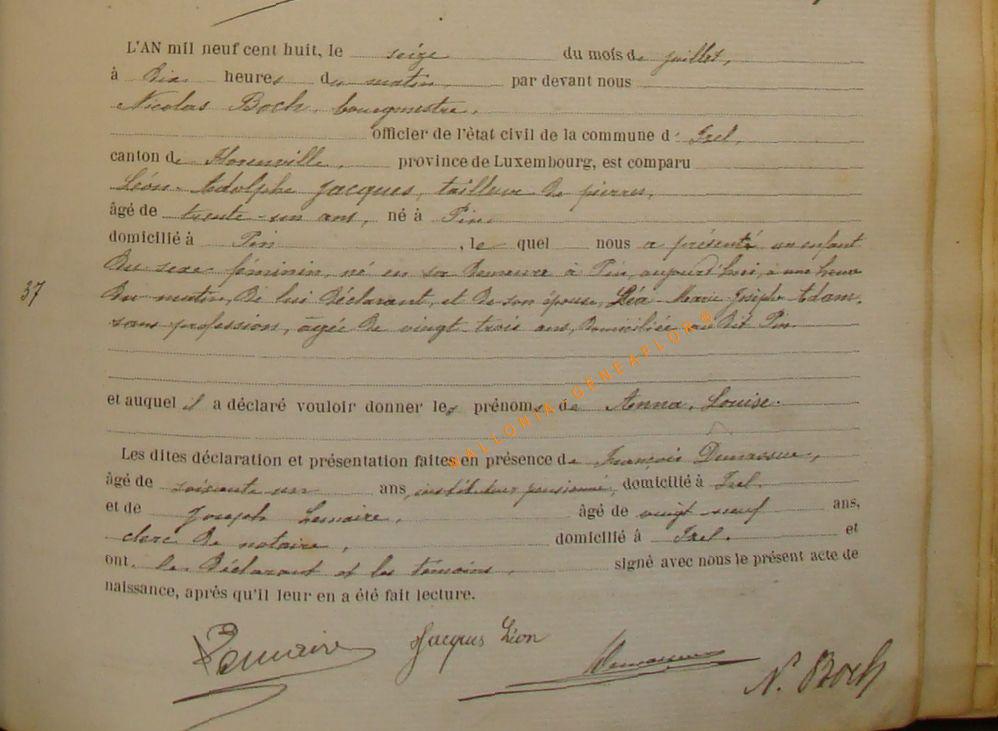 L'AN mil neuf cent huit, le seize du mois de juillet,
à dix heures du matin, par devant nous
Nicolas Boch, bourgmestre,
officier de l'état civil de la commune d' Izel,
canton de Florenville, province de Luxembourg, est comparu
Léon-Adolphe Jacques, tailleur de pierres,
âgé de trente-un ans, né à Pin
domicilié à Pin, le quel nous a présenté un enfant
du sexe féminin, né en sa demeure à Pin, aujourd'hui, à une heure
37
du matin, de lui déclarant, et de son épouse, Léa-Marie-Josèphe Adam,
sans profession, âgée de vingt-trois ans, domiciliée au dit Pin.
et auquel il a déclaré vouloir donner les prénoms de Anna, Louise.
WALLONIA-GENEAPLOR®
Les dites déclaration et présentation faites en présence de François Demasseur,
âgé de soixante un ans, instituteur pensionné, domicilié à Izel.
et de Joseph Lemaire, âgé de vingt-neuf ans,
clerc de notaire, domicilié à Izel. et
ont le déclarant et les témoins, signé avec nous le présent acte de
naissance, après qu'il leur en a été fait lecture.
Lemaire Jacques Léon N. Boch